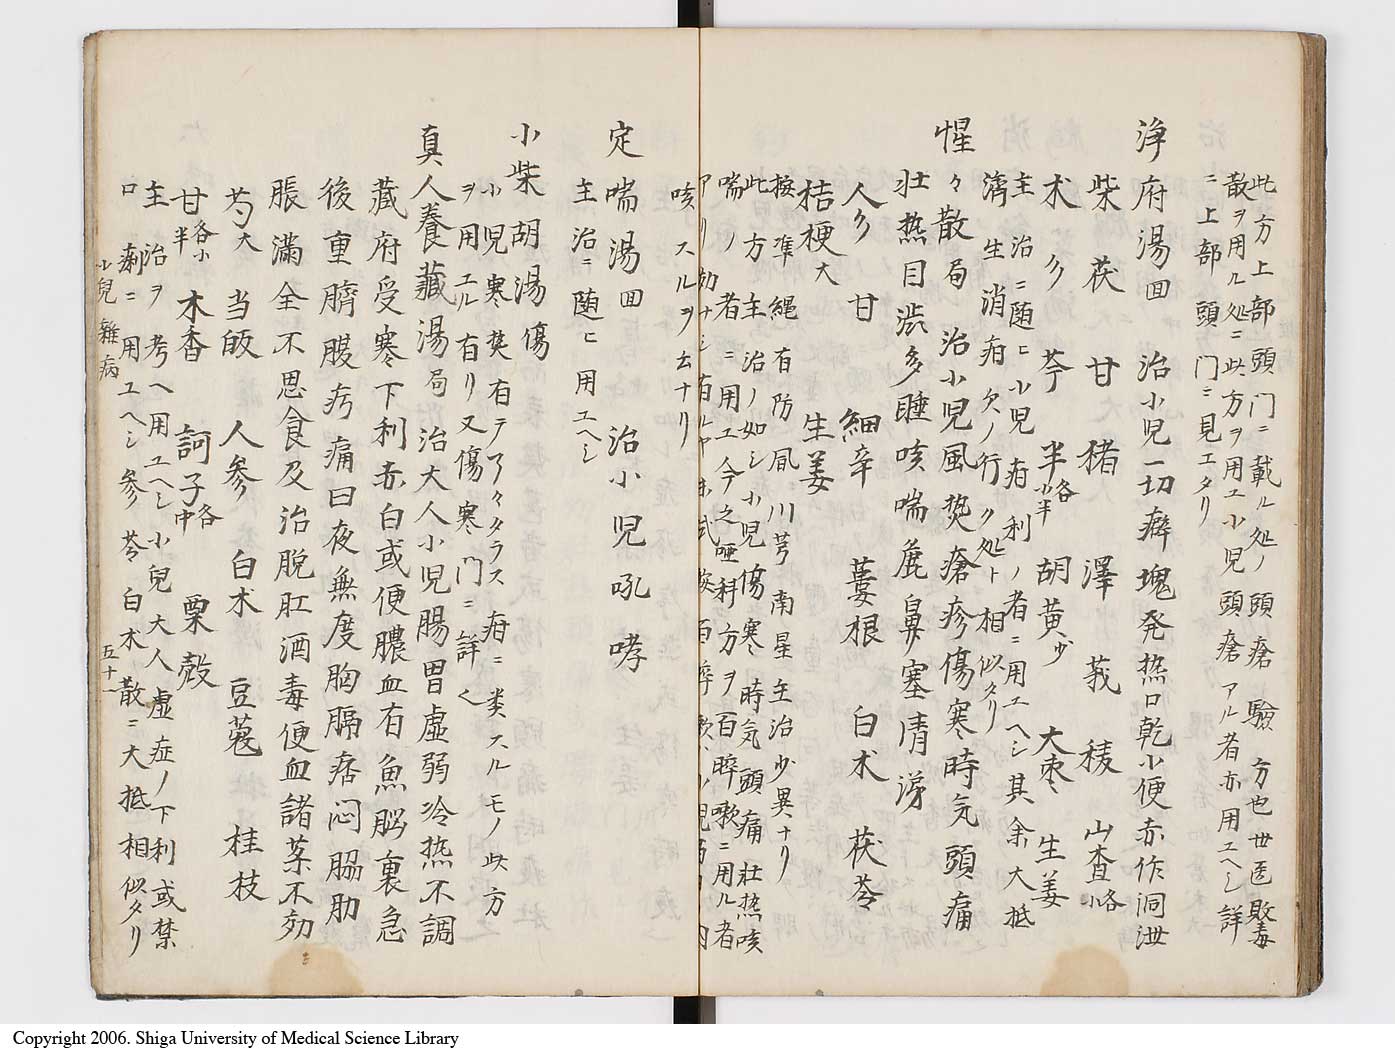 此方上部頭門ニ載ル処ノ頭瘡験方也世医敗毒
散ヲ用ル処ニ此方ヲ用エ小児頭瘡アル者亦用エヘシ詳
ニ上部頭门ニ見エタリ
浄府湯回 治小児一切癖塊発热口乾小便赤作洞泄
柴 茯 甘 猪 澤 莪 稜 山査各小
术 芩 半各小半 胡黄少 大枣 生姜
主治ニ随ヒ小児疳利ノ者ニ用エヘシ其余大抵
済生消疳ノ行ク処ト相似タリ
惺々散局 治小児風热瘡疹傷寒時気頭痛
壮热目渋多睡咳喘麁鼻塞清涕
人 甘 細辛 蔞根 白术 茯苓
桔梗大 生姜
按準繩有防風川芎南星主治少異ナリ
此方主治ノ如シ小児傷寒時気頭痛壮热咳
喘ノ者ニ用エ今之唖科方ヲ百晬嗽ニ用ル者
咳スルヲ云ナリ
定喘湯回 治小児吼哮
主治ニ随ヒ用エヘシ
小柴胡湯傷
小児寒热有テアタラス疳ニ类スルモノ此方
ヲ用エル有リ又傷寒門ニ詳
真人養藏湯局 治大人小児腸胃虚弱冷热不調
藏府受寒下利赤白或便膿血有魚脳裏急
後重臍腹疞痛日夜無度胸膈痞闷脇肋
脹滿全不思食及治脱肛酒毒便血諸薬不効
芍大 当皈 人参 白术 豆蔲 桂枝
甘各小半 木香 訶子各中 粟殻
主治ヲ考ヘ用エヘシ小兒大人虚症ノ下利或禁
口痢ニ用エヘシ参苓白术散ニ大抵相似タリ
小兒雜病 五十一
Copyright 2006. Shiga University of Medical Science Library